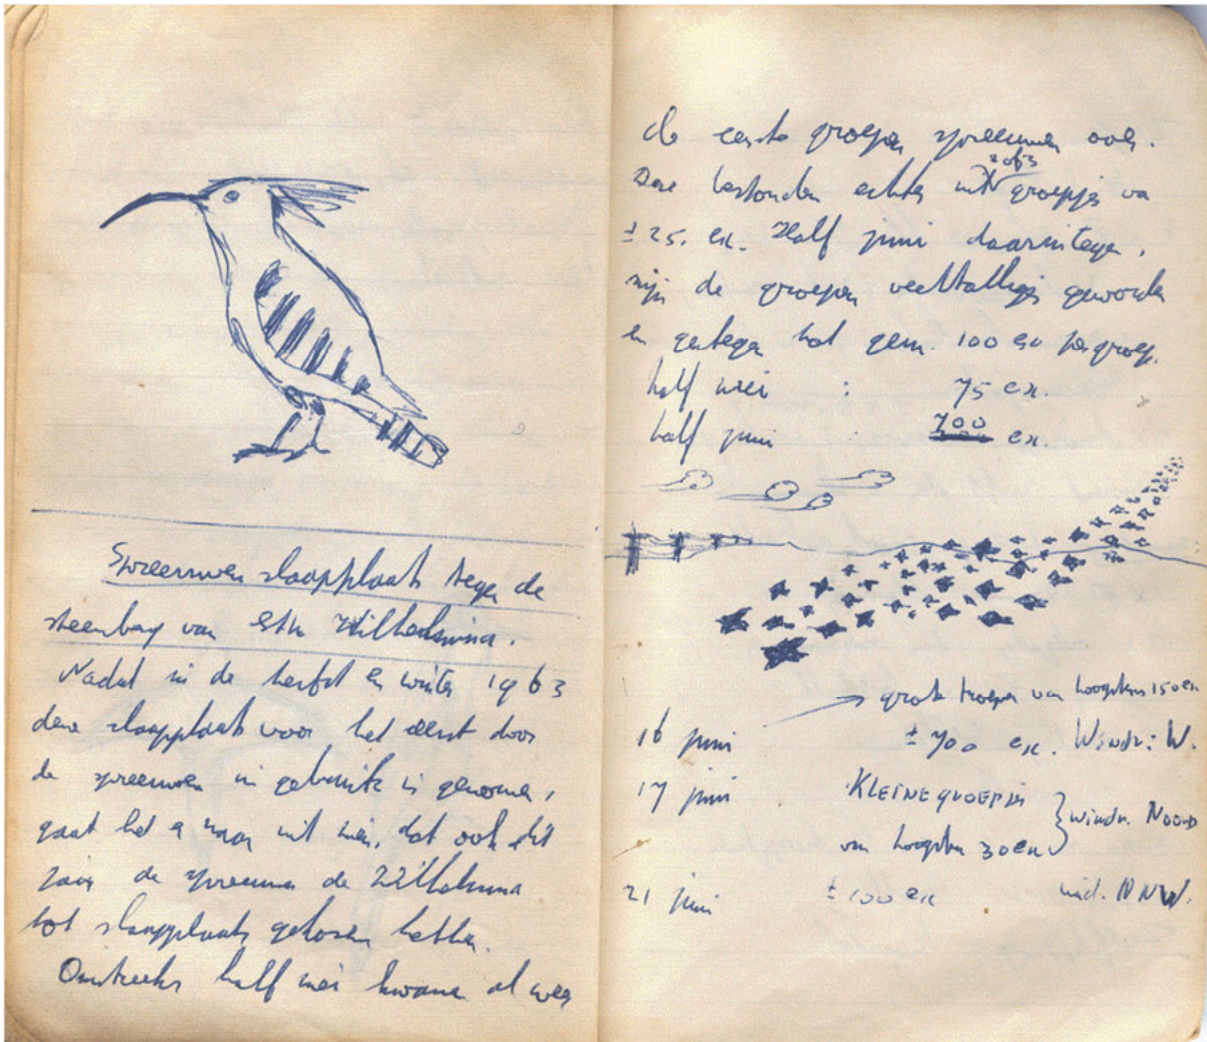 Spreeuwen slaapplaats tegen de
steenberg van Wilhelmina.
Nadat in de herfst en winter 1963
deze slaapplaats voor het eerst door
de spreeuwen in gebruik is genomen,
gaat het er naar uit zien, dat ook dit
jaar de spreeuwen de Wilhelmina
tot slaapplaats gekozen hebben.
Omstreeks half mei kwamen al weer
de eerste groepen spreeuwen over.
2 of 3
Deze bestonden echter uit groepjes van
± 25. ex. Half juni daarintegen,
zijn de groepen veeltalliger geworden
en gestegen tot gem. 100 ex per groep.
half mei : 75 ex.
half juni : 700 ex.
→ grote troepen van hoogstens 150 ex
16 juni ± 700 ex. Windr: W.
17 juni KLEINE GROEPJES
van hoogstens 30 ex } windr. Noord
21 juni ± 100 ex wind. NNW.